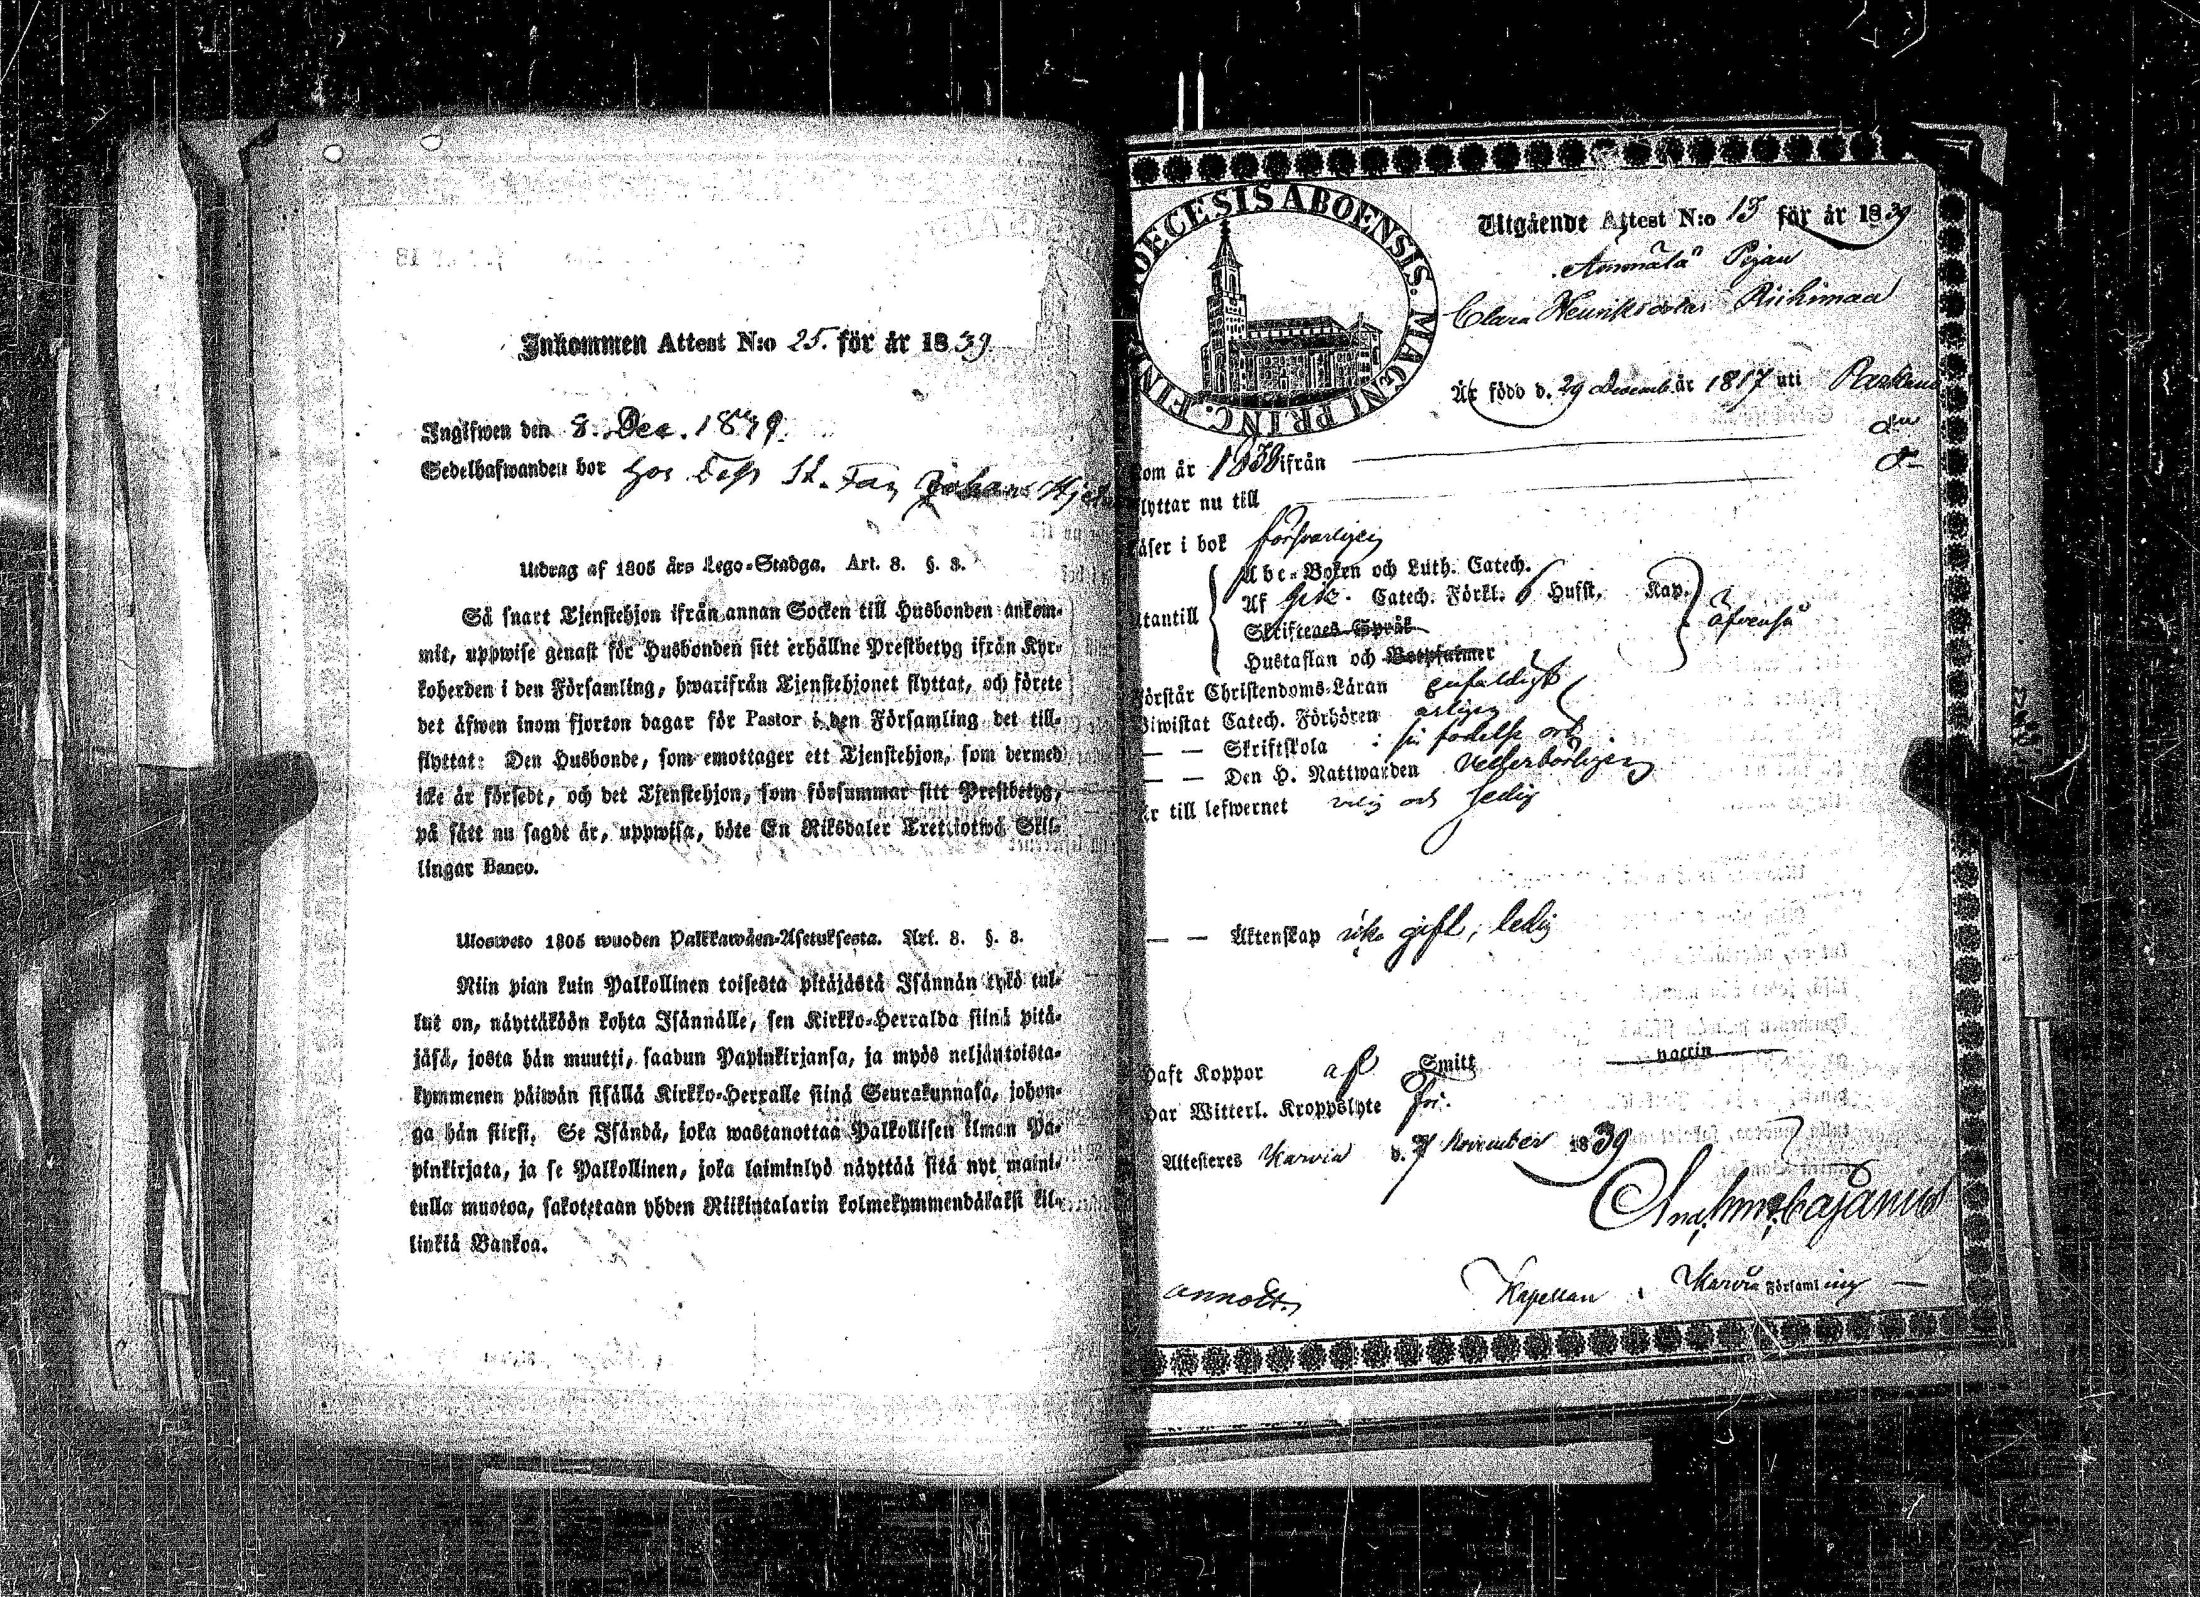 Inkommen Attest N:o 25. för år 1839
Ingifwen den 8. Dec. 1839.
Sedelhafwanden bor hos
Utdrag af 1805 års Lego-Stadga. Art. 8. §. 3.
Så snart Tjenstehjon ifrån annan Socken till Husbonden ankom-
mit, uppwise genast för Husbonden sitt erhållne Prestbetyg ifrån Kyr-
koherden i den Församling, hwarifrån Tjenstehjonet flyttat, och förete
det äfwen inom fjorton dagar för Pastor i den Församling det till-
flyttat: Den Husbonde, som emottager ett Tjenstehjon, som dermed
icke är försedt, och det Tjenstehjon, som försummar sitt Prestbetyg,
på sätt nu sagdt är, uppwisa, böte En Riksdaler Trettiotwå Skil-
lingar Banco.
Ulosweto 1805 wuoden Palkkawäen-Asetuksesta. Art. 8. §. 3.
Niin pian kuin Palkollinen toisesta pitäjästä Isännän tykö tul-
lut on, näyttäköön kohta Isännälle, sen Kirkko-Herralda siinä pitä-
jäsä, josta hän muutti, saadun Papinkirjansa, ja myös neljäntoista-
kymmenen päiwän sisällä Kirkko-Herralle siinä Seurakunnasa, johon-
ga hän siirsi. Se Isändä, joka wastanottaa Palkollisen ilman Pa-
pinkirjata, ja se Palkollinen, joka laiminlyö näyttää sitä nyt maini-
tulla muotoa, sakotetaan yhden Riikintalarin kolmekymmendäkaksi kil-
linkiä Bankoa.
DIOECESIS ABOENSIS. MAGNI PRINC. FIN
Utgående Attest N:o 13 för år 1839
Pigan
Clara Henriksdotter Riihimaa
Är född d. 29 Decemb. år 1817 uti
kom år 1839 ifrån
flyttar nu till
Läser i bok försvarligen
Abc-Boken och Luth. Catech.
Af Catech. Förkl. 6 Husst. Kap.
Utantill äfvenså
Skriftenes Språk
Hustaflan och Botpsalmer
Förstår Christendoms-Läran enfaldigt
Biwistat Catech. Förhören årligen
— — Skriftskola i sin födelse ort
— — Den H. Nattwarden vederbörligen
Är till lefwernet och
— — Äktenskap icke gift, ledig
Haft Koppor af Smitt vaccin
Har Witterl. Kroppslyte fri.
Attesteres Karvia d. 7 November 1839
And. Cajanus
annott. Kapellan i Karvia Församling